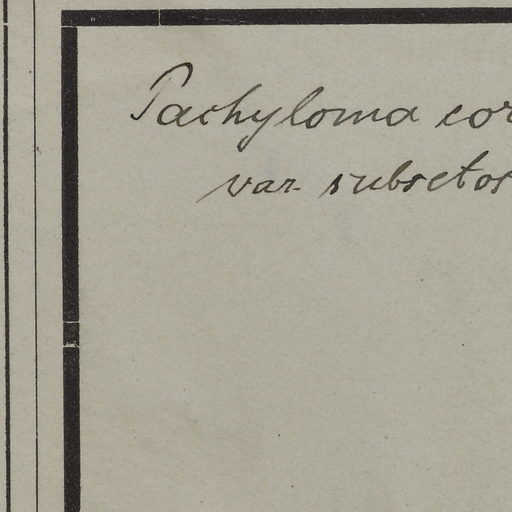 Pachyloma cor
var. subsetos